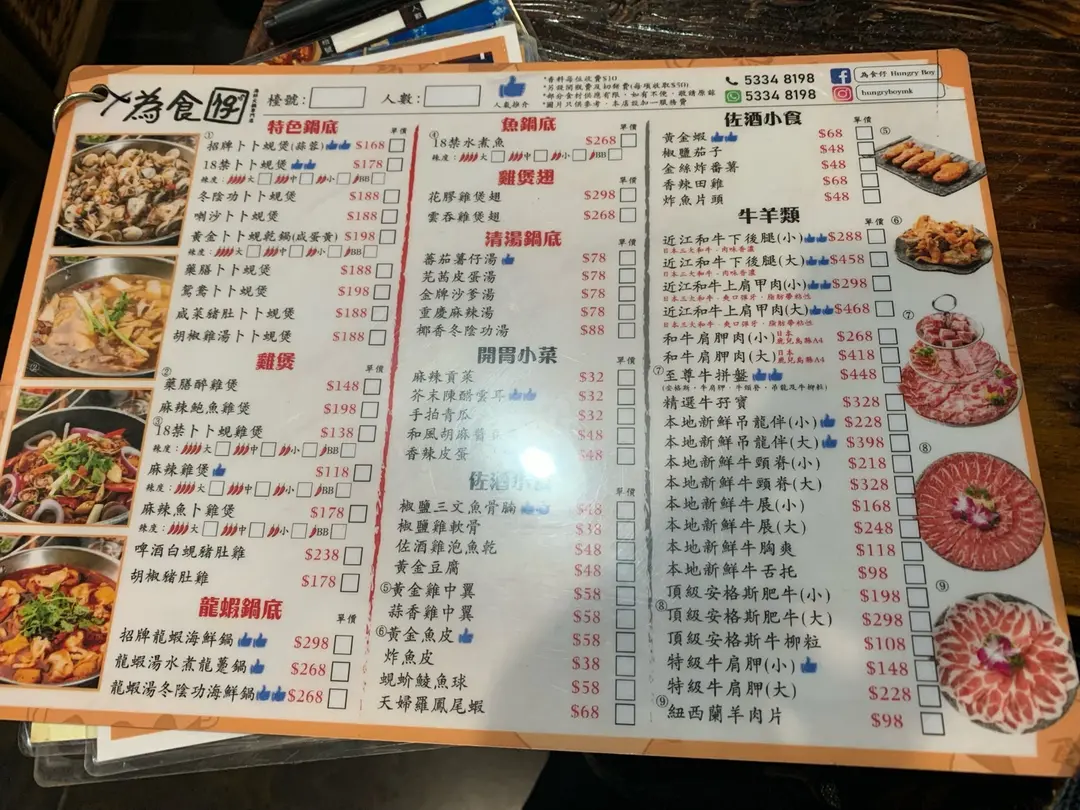 為食仔
檯號：
人數：
人氣推介
*香料每位收費$10
*另設開瓶費及切餅費(每項收取$50)
*部分食材供應有限，如有不便，敬請原諒
*圖片只供參考，本店設加一服務費
5334 8198
5334 8198
為食仔 Hungry Boy
hungryboymk
特色鍋底
單價
①
招牌卜卜蜆煲(蒜蓉) $168
18禁卜卜蜆煲 $178
辣度： 大 中 小 BB
冬陰功卜卜蜆煲 $188
喇沙卜卜蜆煲 $188
黃金卜卜蜆乾鍋(咸蛋黃) $198
辣度： 大 中 小 BB
藥膳卜卜蜆煲 $188
鴛鴦卜卜蜆煲 $198
咸菜豬肚卜卜蜆煲 $188
胡椒雞湯卜卜蜆煲 $188
雞煲
單價
②
藥膳醉雞煲 $148
麻辣鮑魚雞煲 $198
③
18禁卜卜蜆雞煲 $138
辣度： 大 中 小 BB
麻辣雞煲 $118
辣度： 大 中 小 BB
麻辣魚卜雞煲 $178
辣度： 大 中 小 BB
啤酒白蜆豬肚雞 $238
胡椒豬肚雞 $178
龍蝦鍋底
單價
招牌龍蝦海鮮鍋 $298
龍蝦湯水煮龍躉鍋 $268
龍蝦湯冬陰功海鮮鍋 $268
魚鍋底
單價
④
18禁水煮魚 $268
辣度： 大 中 小 BB
雞煲翅
單價
花膠雞煲翅 $298
雲吞雞煲翅 $268
清湯鍋底
單價
蕃茄薯仔湯 $78
芫茜皮蛋湯 $78
金牌沙爹湯 $78
重慶麻辣湯 $78
椰香冬陰功湯 $88
開胃小菜
單價
麻辣貢菜 $32
芥末陳醋雲耳 $32
手拍青瓜 $32
和風胡麻醬 $48
香辣皮蛋 $48
佐酒小食
單價
椒鹽三文魚骨腩 $48
椒鹽雞軟骨 $38
佐酒雞泡魚乾 $48
黃金豆腐 $48
⑤黃金雞中翼 $58
蒜香雞中翼 $58
⑥黃金魚皮 $58
炸魚皮 $38
蜆蚧鯪魚球 $58
天婦羅鳳尾蝦 $68
佐酒小食
單價
黃金蝦 $68
椒鹽茄子 $48
金絲炸番薯 $48
香辣田雞 $68
炸魚片頭 $48
牛羊類
單價
近江和牛下後腿(小) $288
日本三大和牛，肉味香濃
近江和牛下後腿(大) $458
日本三大和牛，肉味香濃
近江和牛上肩甲肉(小) $298
日本三大和牛，爽口彈牙，脂肪帶粘性
近江和牛上肩甲肉(大) $468
日本三大和牛，爽口彈牙，脂肪帶粘性
和牛肩胛肉(小) 日本鹿兒島縣A4 $268
和牛肩胛肉(大) 日本鹿兒島縣A4 $418
⑦至尊牛拼盤 $448
(安格斯，牛肩胛，牛頸脊，吊龍及牛柳粒)
精選牛孖寶 $328
本地新鮮吊龍伴(小) $228
本地新鮮吊龍伴(大) $398
本地新鮮牛頸脊(小) $218
本地新鮮牛頸脊(大) $328
本地新鮮牛展(小) $168
本地新鮮牛展(大) $248
本地新鮮牛胸爽 $118
本地新鮮牛舌托 $98
頂級安格斯肥牛(小) $198
⑧頂級安格斯肥牛(大) $298
頂級安格斯牛柳粒 $108
特級牛肩胛(小) $148
特級牛肩胛(大) $228
⑨紐西蘭羊肉片 $98
②
⑤
⑥
⑦
⑧
⑨